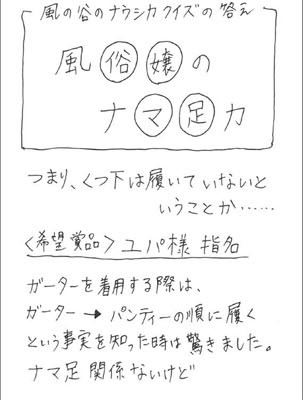 風の谷のナウシカクイズの答え
風俗嬢の
ナマ足カ
つまり、くつ下は履いていないと
いうことか……
〈希望賞品〉ユパ様 指名
ガーターを着用する際は、
ガーター→パンティーの順に履く
という事実を知った時は驚きました。
ナマ足関係ないけど